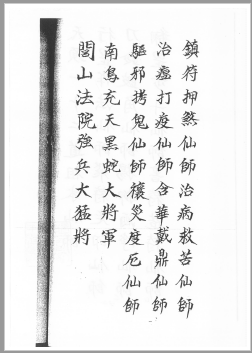 鎮符押煞仙師治病救苦仙師
治瘟打疫仙師含華戴鼎仙師
驅邪拷鬼仙師禳災度厄仙師
南鳥充天黑蛇大將軍
閭山法院強兵大猛將